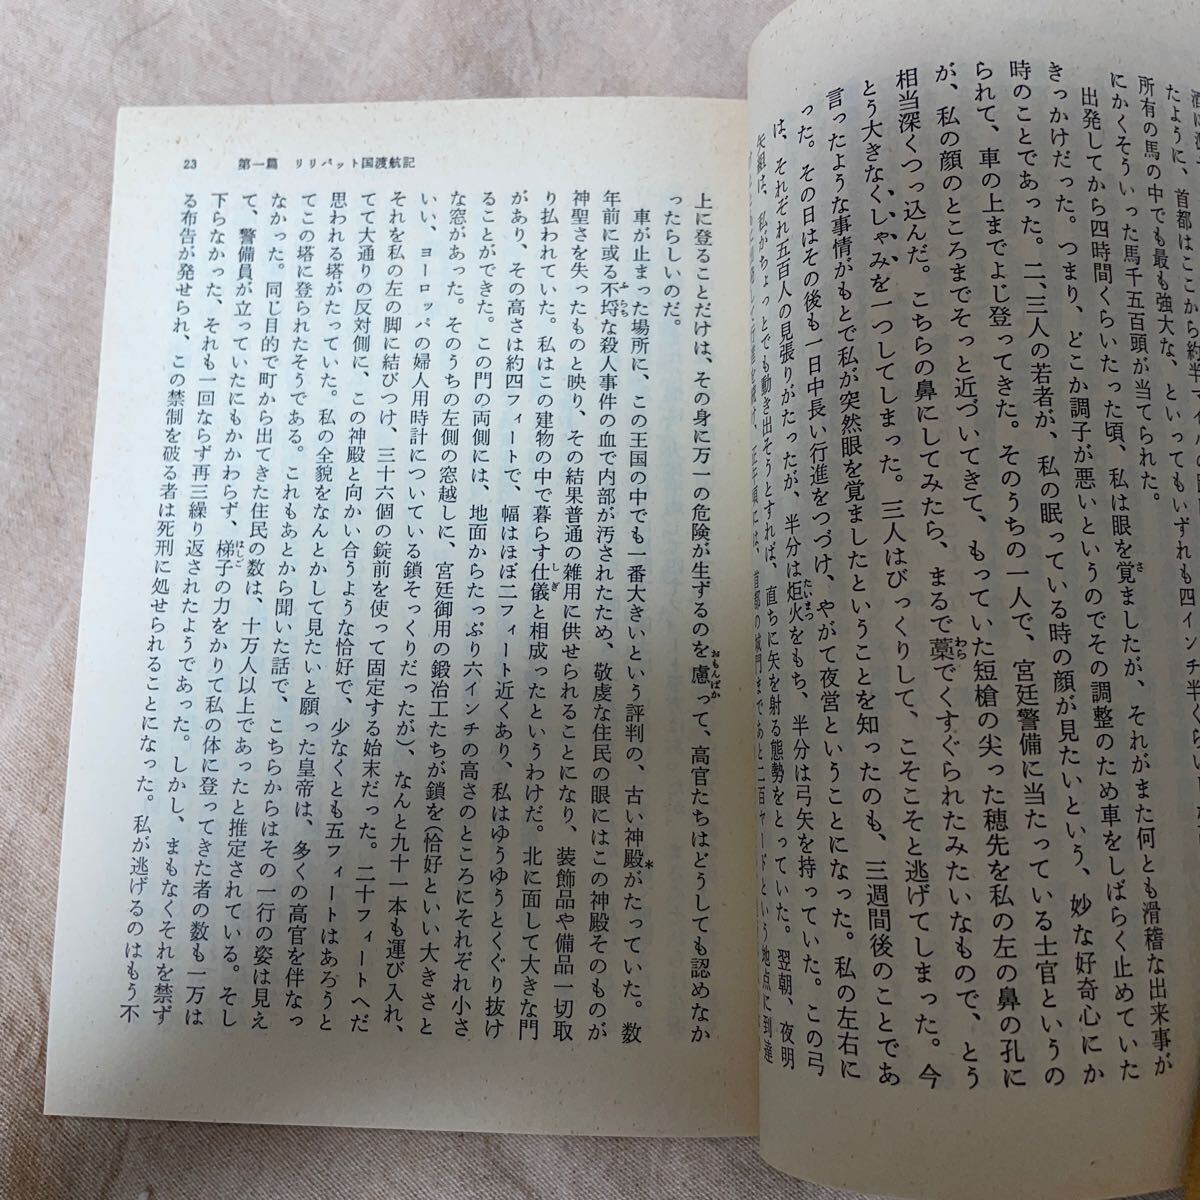 たように、首都はここから約半
所有の馬の中でも最も強大な、といってもいずれも四インチ半くらい
にかくそういった馬千五百頭が当てられた。
出発してから四時間くらいたった頃、私は眼を覚ましたが、それがまた何とも滑稽な出来事が
きっかけだった。つまり、どこか調子が悪いというのでその調整のため車をしばらく止めていた
時のことであった。二、三人の若者が、私の眠っている時の顔が見たいという、妙な好奇心にか
られて、車の上までよじ登ってきた。そのうちの一人で、宮廷警備に当たっている士官というの
が、私の顔のところまでそっと近づいてきて、もっていた短槍の尖った穂先を私の左の鼻の孔に
相当深くつっ込んだ。こちらの鼻にしてみたら、まるで藁でくすぐられたみたいなもので、とう
とう大きなくしゃみを一つしてしまった。三人はびっくりして、こそこそと逃げてしまった。今
言ったような事情がもとで私が突然眼を覚ましたということを知ったのも、三週間後のことであ
った。その日はその後も一日中長い行進をつづけ、やがて夜営ということになった。私の左右に
は、それぞれ五百人の見張りがたったが、半分は炬火をもち、半分は弓矢を持っていた。この弓
矢組は、私がちょっとでも動き出そうとすれば、直ちに矢を射る態勢をとっていた。翌朝、夜明
首都の城門まであと二百ヤードという地点に到達
23 第一篇 リリパット国渡航記
上に登ることだけは、その身に万一の危険が生ずるのを慮って、高官たちはどうしても認めなか
ったらしいのだ。
車が止まった場所に、この王国の中でも一番大きいという評判の、古い神殿*がたっていた。数
年前に或る不埒な殺人事件の血で内部が汚されたため、敬虔な住民の眼にはこの神殿そのものが
神聖さを失ったものと映り、その結果普通の雑用に供せられることになり、装飾品や備品一切取
り払われていた。私はこの建物の中で暮らす仕儀と相成ったというわけだ。北に面して大きな門
があり、その高さは約四フィートで、幅はほぼ二フィート近くあり、私はゆうゆうとくぐり抜け
ることができた。この門の両側には、地面からたっぷり六インチの高さのところにそれぞれ小さ
な窓があった。そのうちの左側の窓越しに、宮廷御用の鍛冶工たちが鎖を(恰好といい大きさと
いい、ヨーロッパの婦人用時計についている鎖そっくりだったが)、なんと九十一本も運び入れ、
それを私の左の脚に結びつけ、三十六個の錠前を使って固定する始末だった。二十フィートへだ
てて大通りの反対側に、この神殿と向かい合うような恰好で、少なくとも五フィートはあろうと
思われる塔がたっていた。私の全貌をなんとかして見たいと願った皇帝は、多くの高官を伴なっ
てこの塔に登られたそうである。これもあとから聞いた話で、こちらからはその一行の姿は見え
なかった。同じ目的で町から出てきた住民の数は、十万人以上であったと推定されている。そし
て、警備員が立っていたにもかかわらず、梯子の力をかりて私の体に登ってきた者の数も一万は
下らなかった、それも一回ならず再三繰り返されたようであった。しかし、まもなくそれを禁ず
る布告が発せられ、この禁制を破る者は死刑に処せられることになった。私が逃げるのはもう不